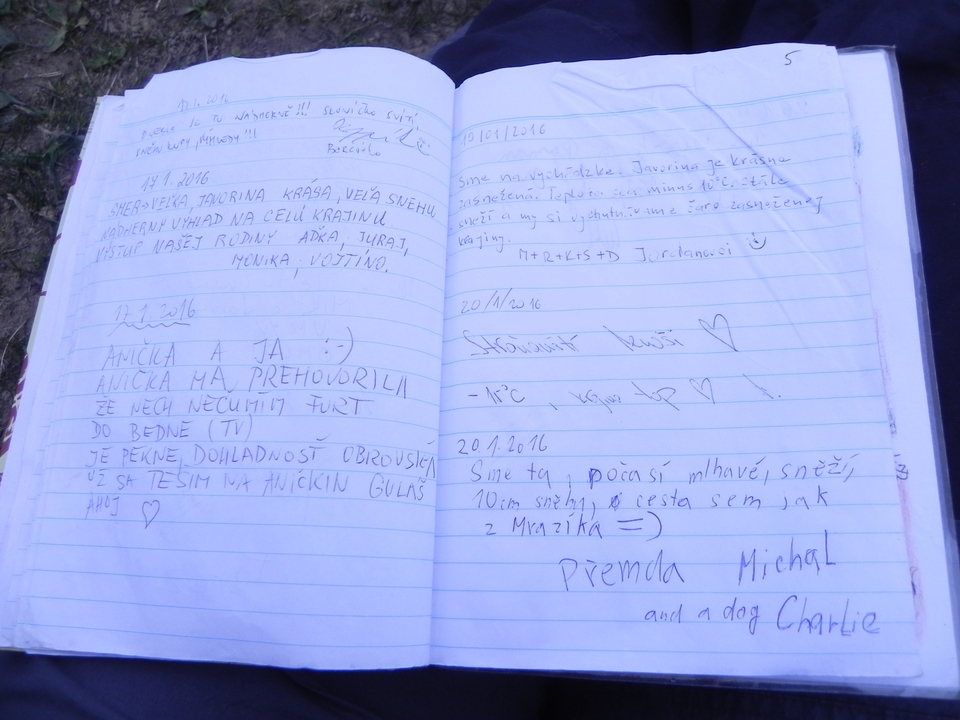 17.1.2016
SLNIEČKO SVIETI
17.1.2016
SMER → VEĽKÁ JAVORINA KRÁSA, VEĽA SNEHU
NÁDHERNÝ VÝHĽAD NA CELÚ KRAJINU
VÝSTUP NAŠEJ RODINY AĎKA, JURAJ,
MONIKA, VOJTINO.
17.1.2016
ANIČKA A JA :-)
ANIČKA MA PREHOVORILA
ŽE NECH NEČUMÍM FURT
DO BEDNE (TV)
JE PĚKNE, DOHLADNOSŤ OBROVSKÁ
UŽ SA TEŠIM NA ANIČKIN GULÁŠ
AHOJ ♡
5
19/01/2016
Sme na vychádzke. Javorina je krásne
zasnežená. Teplota je mínus 10°C, stále
sneží a my si vychutnávame čaro zasneženej
krajiny.
M+R+K+S+D Jordanovci
20/1/2016
♡
♡
20.1.2016
Sme tu, počasí mlhavé, sněží,
10cm sněhu, cesta sem jak
z Mrazíka =)
Přemda Michal
and a dog Charlie